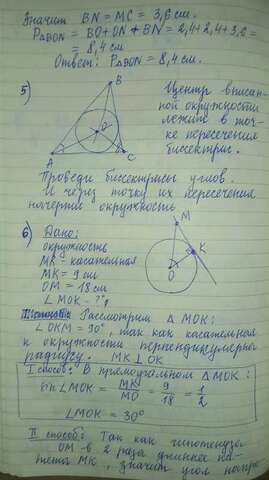 Значит BN = MC = 3,6 см.
P ΔBON = BO + ON + BN = 2,4 + 2,4 + 3,6 =
= 8,4 см
Ответ: P ΔBON = 8,4 см.
5)
B
O
A
C
Центр вписан-
ной окружности
лежит в точ-
ке пересечения
биссектрис.
Проведи биссектрисы углов.
И через точку их пересечения
начерти окружность
6)
Дано:
окружность
MK - касательная
MK = 9 см
OM = 18 см
∠ MOK - ?
M
K
O
Рассмотрим Δ MOK:
∠ OKM = 90°, так как касательная
к окружности перпендикулярна
радиусу. MK ⊥ OK
I способ: В прямоугольном Δ MOK:
sin ∠MOK = MK/MO = 9/18 = 1/2
∠MOK = 30°
II способ: Так как гипотенуза
OM в 2 раза длиннее ка-
тета MK, значит угол напро